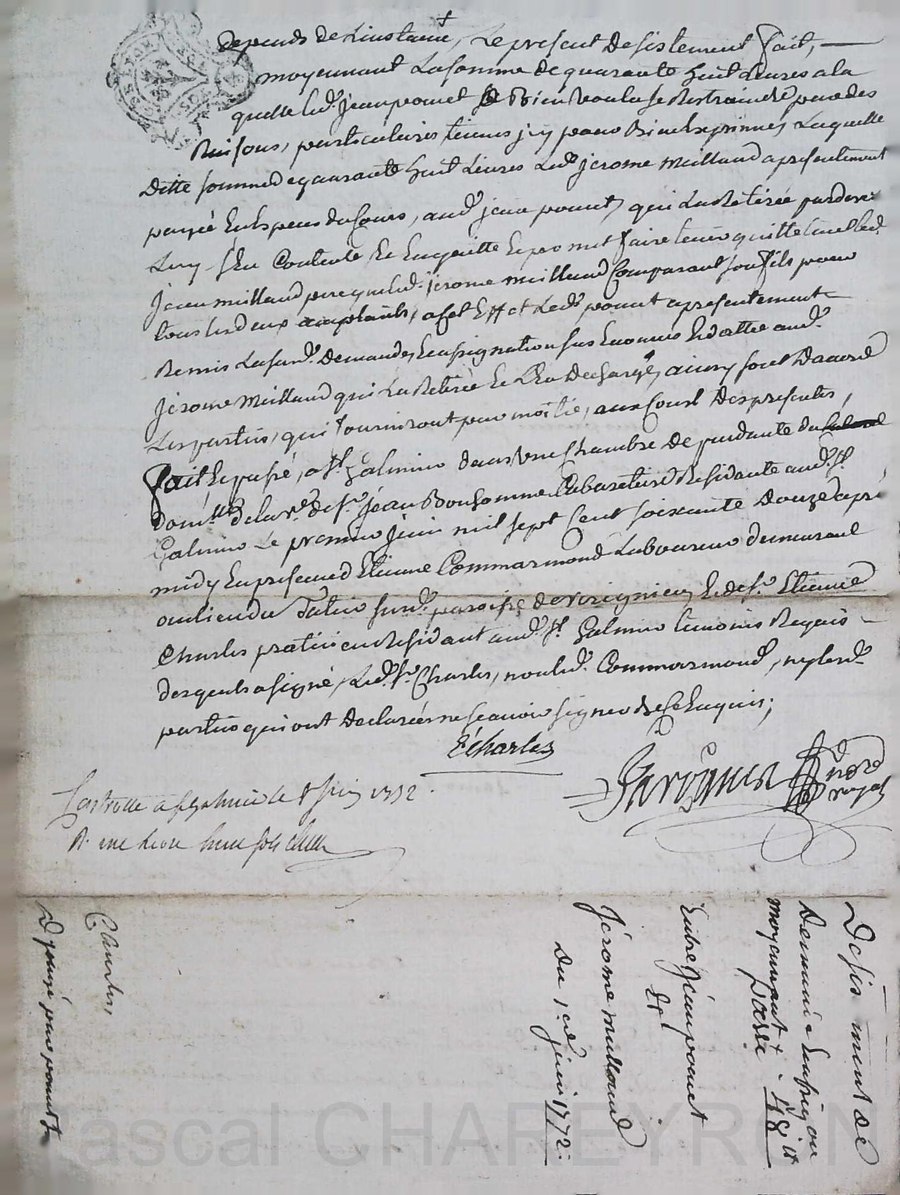 depends de linstance, Le present desistement fait,
moyennant La somme de quarante huit Livres a la
quelle led. jean ponnet a Bien Voulu se Restraindre pour des
Raisons, particulieres tenues jcy pour Bien Exprimés Laquelle
ditte somme de quarante huit Livres Led. jerome Meilland a presentement
payée En Especes du Cours, aud. jean ponnet qui La Retirée pardevers
Luy s'En Contente Et En quitte Et promet faire tenir quitte Envers led.
jean meilland pere que led. jerome meilland Comparant son fils pour
tous les deux, a cet Effet Led. ponnet a presentement
Remis La sus d. Demande En assignation sus Enoncée Et dattée aud.
jerome Meilland qui La Retirée Et L'En Decharge, ainsy sont D'accord
Les parties, qui fourniront par moitié, aux Cout Des presentes,
fait Et passé, a St. Galmier dans Une Chambre Dependante du
domlle de la ve. de sr. jean Bonhomme Cabaretiere Residante aud. St.
Galmier Le premier juin mil sept Cent soixante Douze aprés
midy En presence d'Etienne Commarmond Laboureur demeurant
au lieu du sus d. paroisse de Et de sr. Etienne
Charles praticien Residant aud. St. Galmier temoins Requis
desquels a signé, Led. sr. Charles, non led. Commarmond, ny lesd.
parties qui ont Declaré ne sçavoir signer de ce Enquis;
E Charles
no.re royal
le 8 juin 1772.
R. une livre
Desistment de
Demande
moyennant
48 lt
Entre jean ponnet
Et
Jerome meilland
Du 1er juin 1772.
Charles,